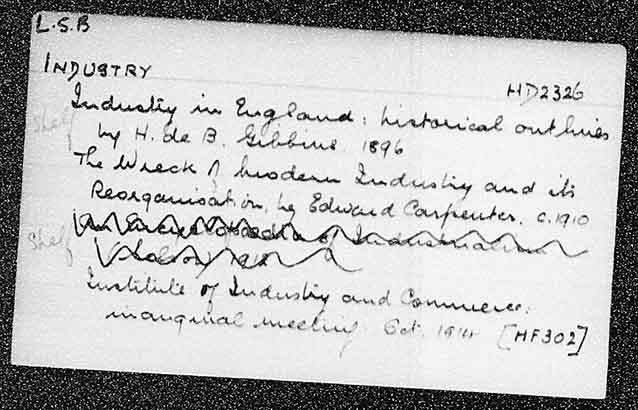 L.S.B
INDUSTRY
HD2326
Industry in England: historical outlines
Shelf by H. de B. Gibbins 1896
The Wreck of modern Industry and its
Reorganisation, by Edward Carpenter. c.1910
An Encyclopaedia of Industrialism
Shelf
Institute of Industry and Commerce:
inaugural meeting. Oct. 1914 [HF302]